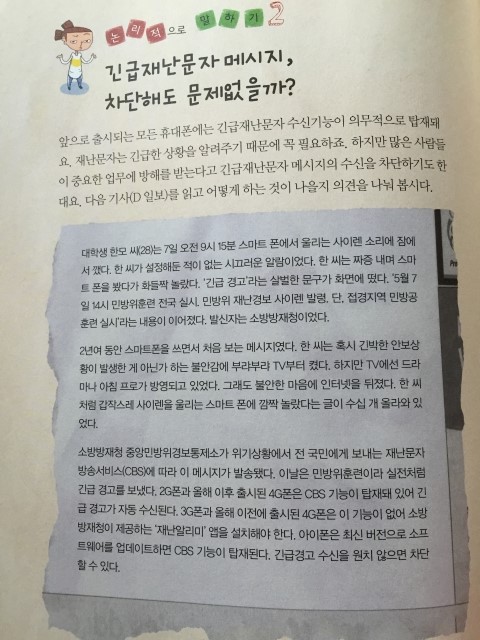 논리적으로 말하기2
긴급재난문자 메시지,
차단해도 문제없을까?
앞으로 출시되는 모든 휴대폰에는 긴급재난문자 수신기능이 의무적으로 탑재돼
요. 재난문자는 긴급한 상황을 알려주기 때문에 꼭 필요하죠. 하지만 많은 사람들
이 중요한 업무에 방해를 받는다고 긴급재난문자 메시지의 수신을 차단하기도 한
대요. 다음 기사(D 일보)를 읽고 어떻게 하는 것이 나을지 의견을 나눠 봅시다.
대학생 한모 씨(28)는 7일 오전 9시 15분 스마트 폰에서 울리는 사이렌 소리에 잠에
서 깼다. 한 씨가 설정해둔 적이 없는 시끄러운 알람이었다. 한 씨는 짜증 내며 스마
트 폰을 봤다가 화들짝 놀랐다. ‘긴급 경고’라는 살벌한 문구가 화면에 떴다. ‘5월 7
일 14시 민방위훈련 전국 실시, 민방위 재난경보 사이렌 발령. 단, 접경지역 민방공
훈련 실시’라는 내용이 이어졌다. 발신자는 소방방재청이었다.
2년여 동안 스마트폰을 쓰면서 처음 보는 메시지였다. 한 씨는 혹시 긴박한 안보상
황이 발생한 게 아닌가 하는 불안감에 부랴부랴 TV부터 켰다. 하지만 TV에선 드라
마나 아침 프로가 방영되고 있었다. 그래도 불안한 마음에 인터넷을 뒤졌다. 한 씨
처럼 갑작스레 사이렌을 울리는 스마트 폰에 깜짝 놀랐다는 글이 수십 개 올라와 있
었다.
소방방재청 중앙민방위경보통제소가 위기상황에서 전 국민에게 보내는 재난문자
방송서비스(CBS)에 따라 이 메시지가 발송됐다. 이날은 민방위훈련이라 실전처럼
긴급 경고를 보냈다. 2G폰과 올해 이후 출시된 4G폰은 CBS 기능이 탑재돼 있어 긴
급 경고가 자동 수신된다. 3G폰과 올해 이전에 출시된 4G폰은 이 기능이 없어 소방
방재청이 제공하는 ‘재난알리미’ 앱을 설치해야 한다. 아이폰은 최신 버전으로 소프
트웨어를 업데이트하면 CBS 기능이 탑재된다. 긴급경고 수신을 원치 않으면 차단
할 수 있다.